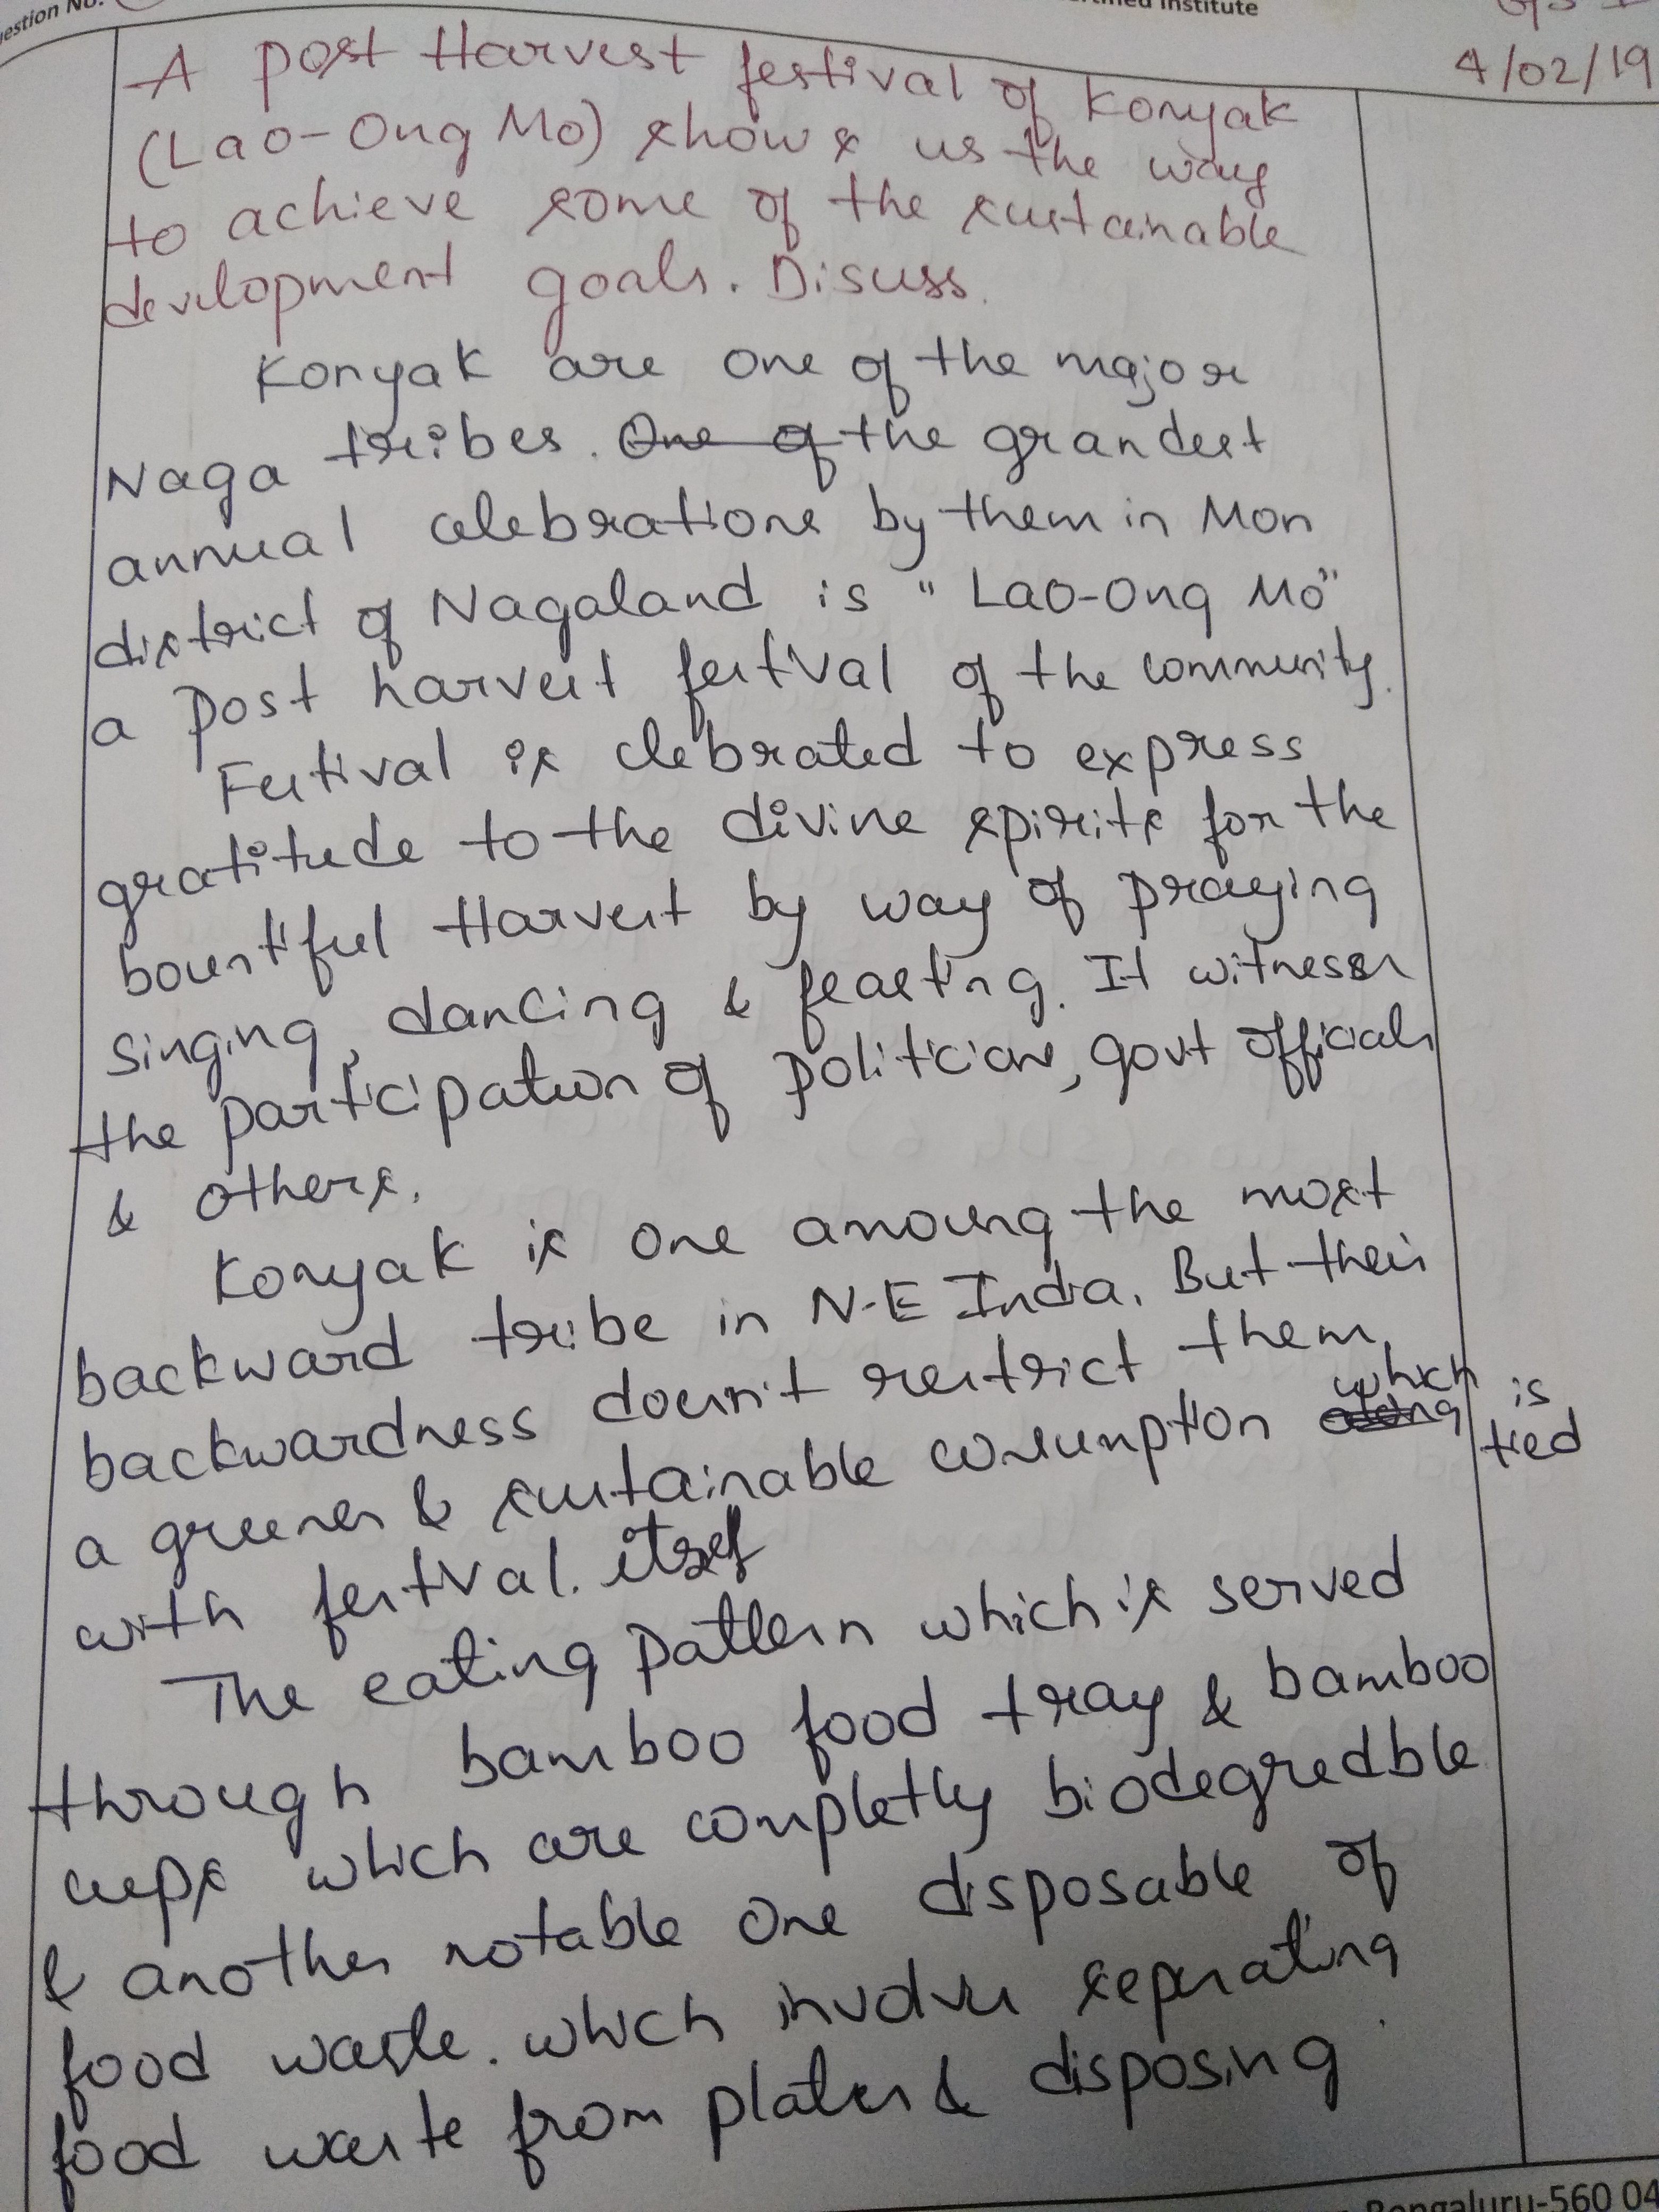 Question No.
Institute
4/02/19
A post Harvest festival of Konyak
(Lao-Ong Mo) shows us the way
to achieve some of the sustainable
development goals. Disuss.
Konyak are one of the major
Naga tribes. One of the grandest
annual celebrations by them in Mon
district of Nagaland is "Lao-Ong Mo"
a post harvest festval of the community.
Festival is clebrated to express
gratitude to the divine spirits for the
bountiful Harvest by way of praying
singing, dancing & feasting. It witnesses
the participation of politicians, govt officials
& others.
Konyak is one amoung the most
backward tribe in N-E India. But their
backwardness doesn't restrict them
a greener & sustainable consumption which is tied
with festval. itself
The eating pattern which is served
through bamboo food tray & bamboo
cups which are completly biodegredble
& another notable one disposable of
food waste. which involves seperating
food waste from plates & disposing
Bengaluru-560 04